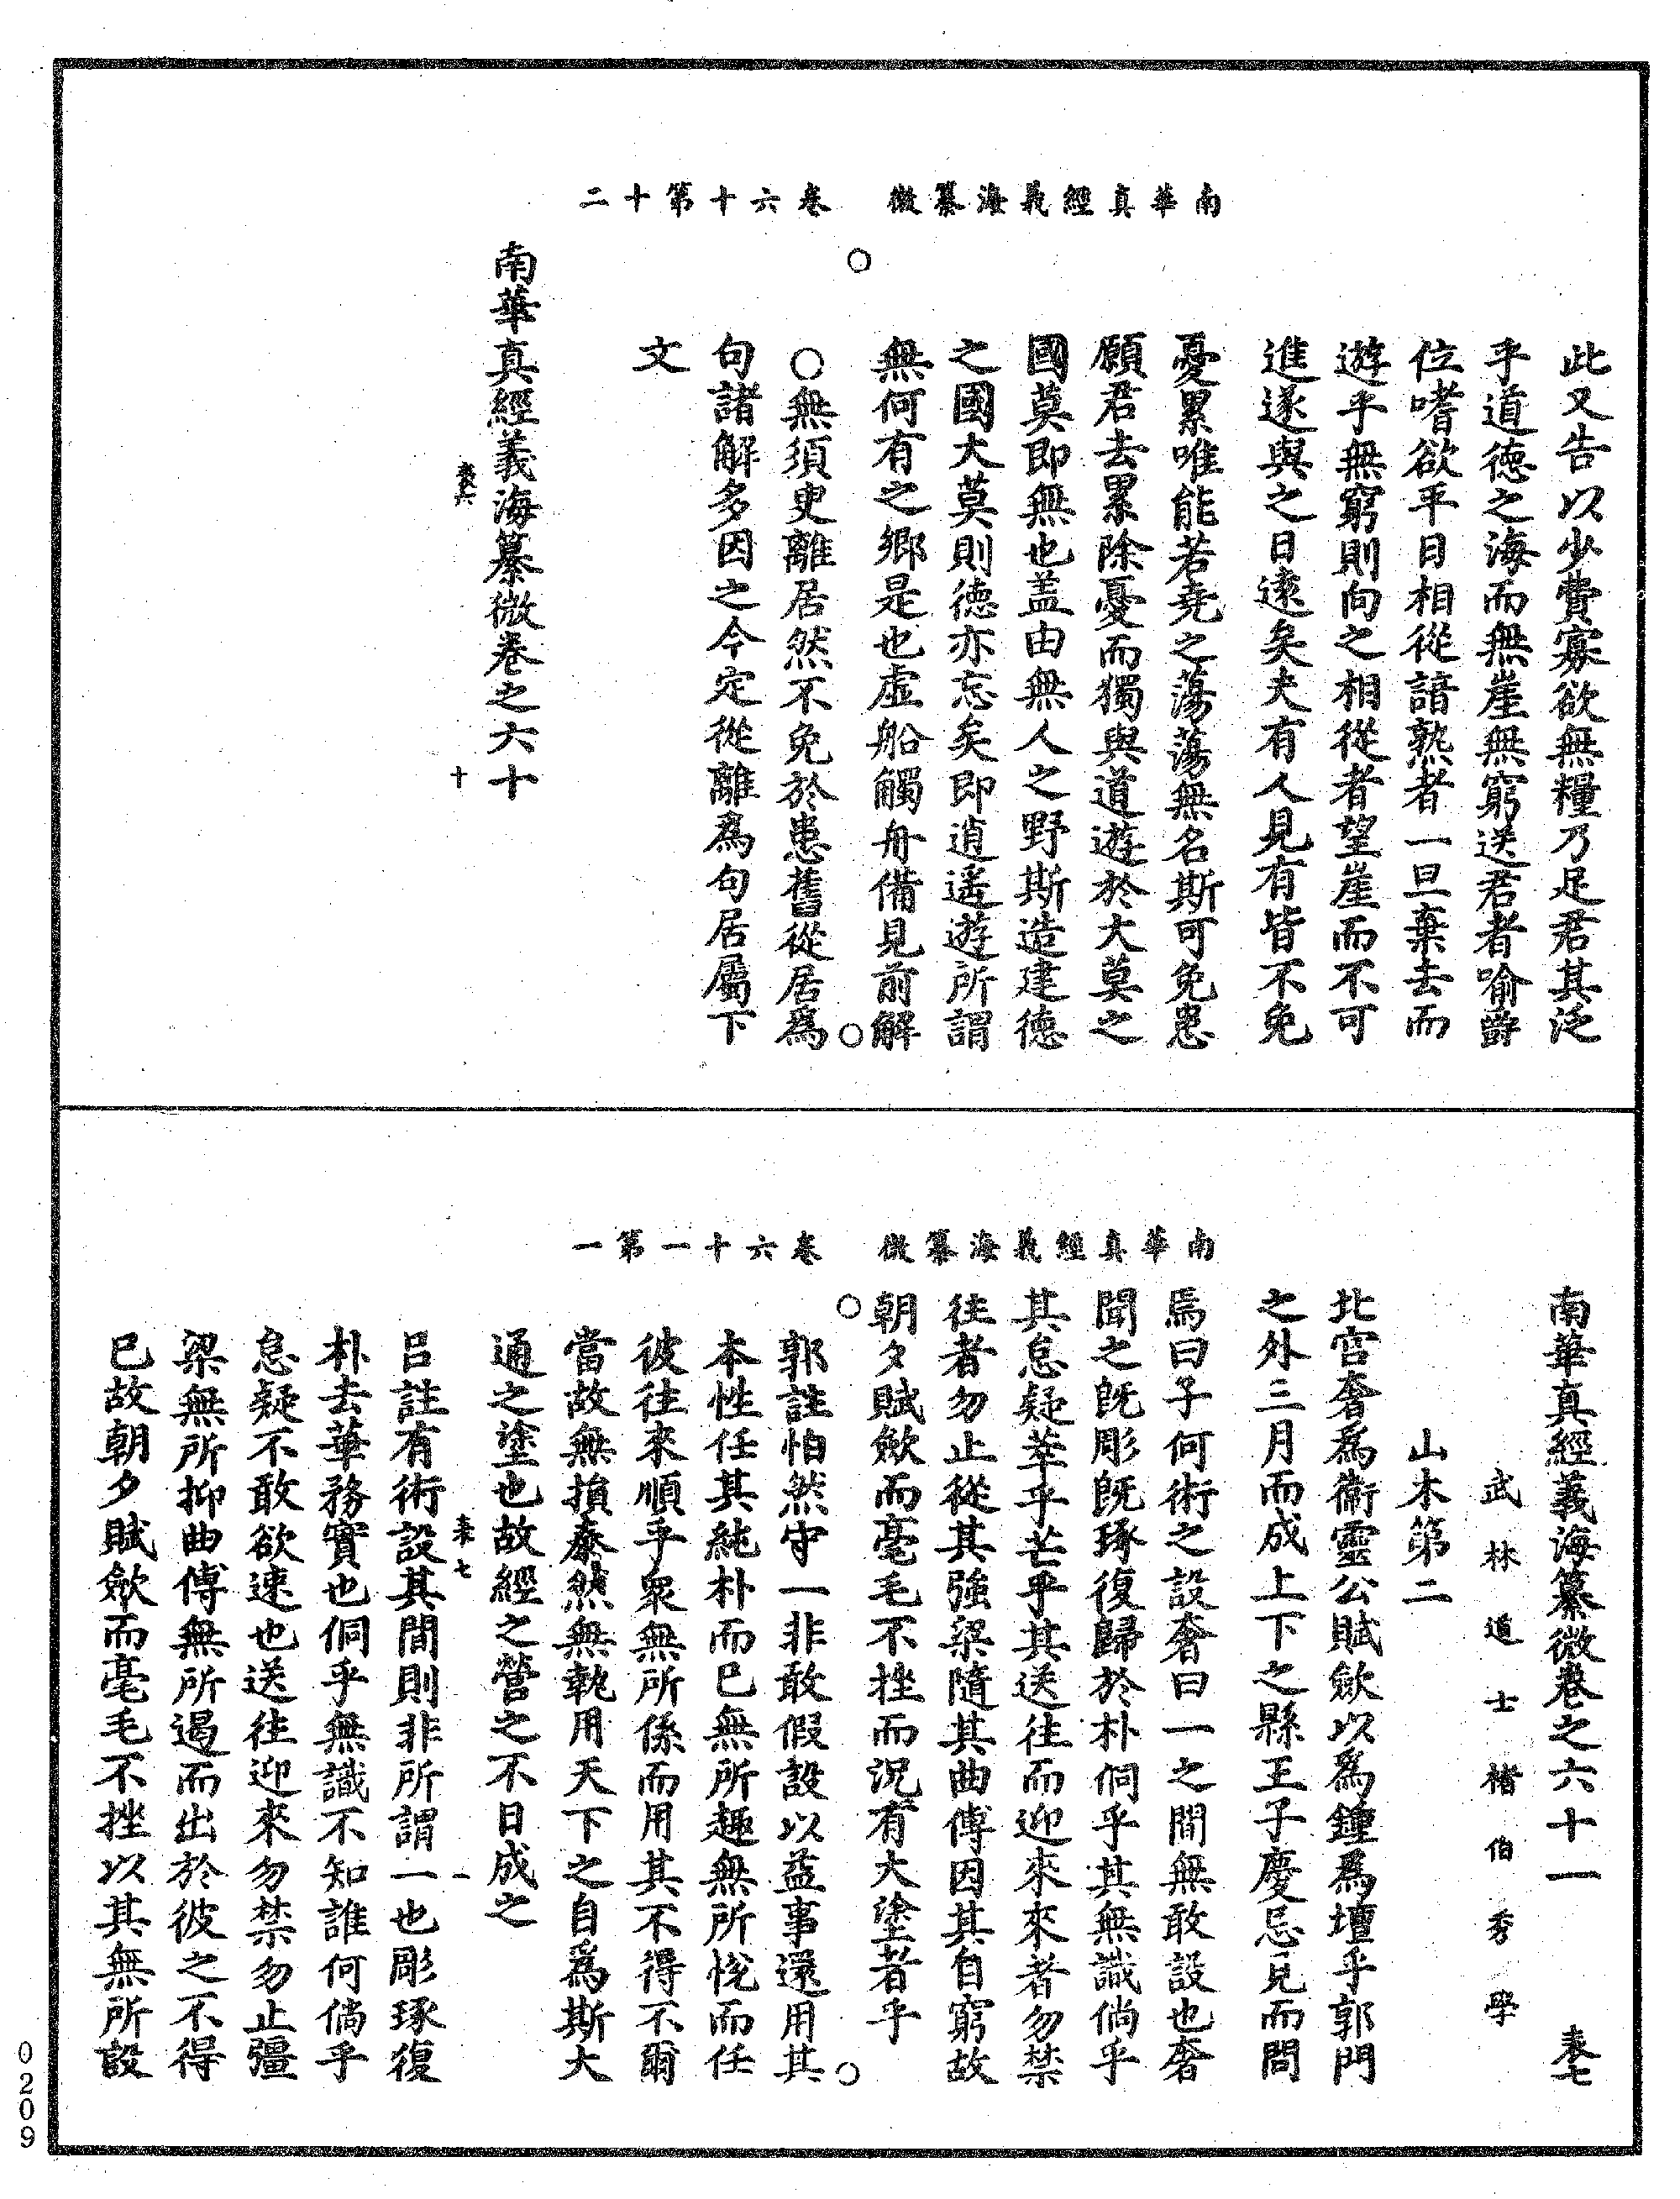 南華真經義海纂微　卷六十第十二
此又告以少費寡欲無糧乃足君其泛
乎道德之海而無崖無窮送君者喻爵
位嗜欲平日相從諳熟者一旦棄去而
遊乎無窮則向之相從者望崖而不可
進遂與之日遠矣夫有人見有皆不免
憂累唯能若堯之蕩蕩無名斯可免患
願君去累除憂而獨與道遊於大莫之
國莫即無也盖由無人之野斯造建德
之國大莫則德亦忘矣即逍遥遊所謂
無何有之鄉是也虛船觸舟備見前解
○無須臾離居然不免於患舊從居為
句諸解多因之今定從離為句居屬下
文
南華真經義海纂微卷之六十
表六　十
南華真經義海纂微　卷六十一第一
南華真經義海纂微卷之六十一　表七
武林道士褚伯秀學
山木第二
北宫奢為衞靈公賦歛以為鐘為壇乎郭門
之外三月而成上下之縣王子慶忌見而問
焉曰子何術之設奢曰一之間無敢設也奢
聞之既彫既琢復歸於朴侗乎其無識倘乎
其怠疑萃乎芒乎其送往而迎來來者勿禁
往者勿止從其強梁隨其曲傅因其自窮故
朝夕賦歛而毫毛不挫而況有大塗者乎
郭註怕然守一非敢假設以益事還用其
本性任其純朴而已無所趣無所恱而任
彼往來順乎衆無所係而用其不得不爾
當故無損泰然無執用天下之自為斯大
通之塗也故經之營之不日成之
表七　一
呂註有術設其間則非所謂一也彫琢復
朴去華務實也侗乎無識不知誰何倘乎
怠疑不敢欲速也送往迎來勿禁勿止彊
梁無所抑曲傅無所遏而出於彼之不得
已故朝夕賦歛而毫毛不挫以其無所設
0209